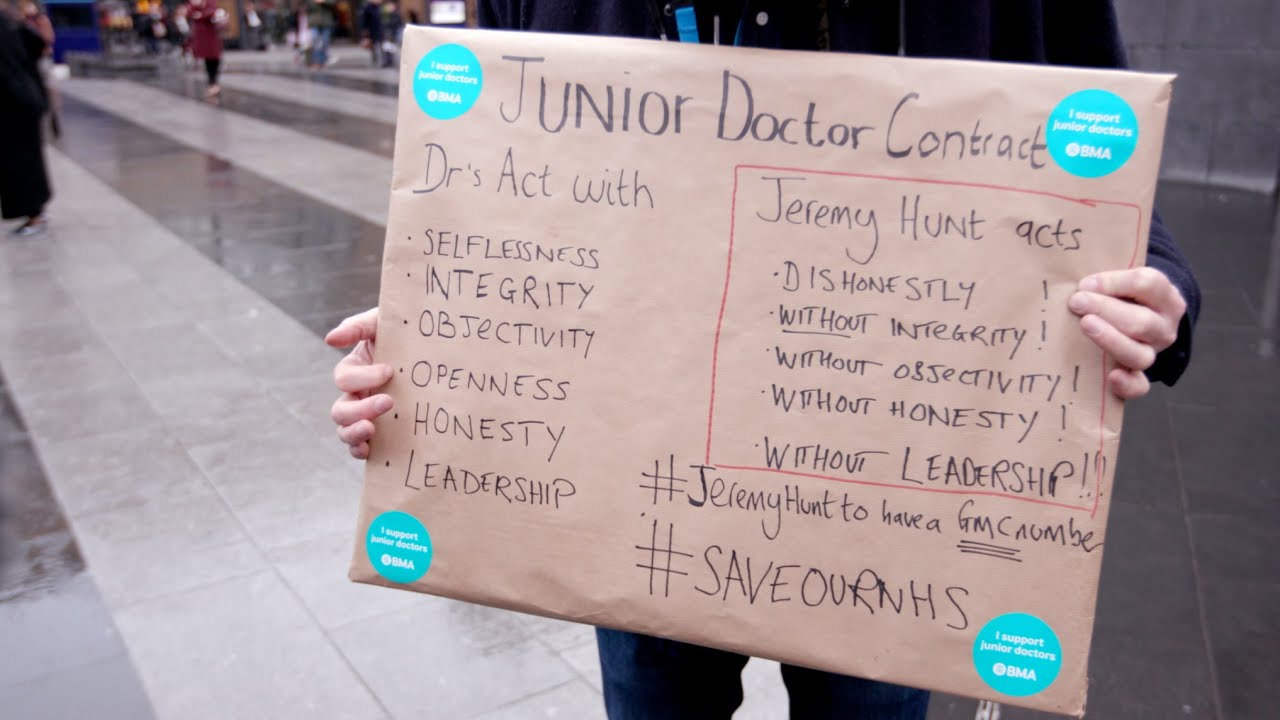 I support
junior doctors
BMA
JUNIOR DOCTOR CONTRACT
I support
junior doctors
BMA
Dr's Act with
· SELFLESSNESS
· INTEGRITY
· OBJECTIVITY
· OPENNESS
· HONESTY
· LEADERSHIP
Jeremy HUNT acts
· DISHONESTLY !
· WITHOUT INTEGRITY !
· WITHOUT OBJECTIVITY !
· WITHOUT HONESTY !
· WITHOUT LEADERSHIP!!!
#JeremyHunt to have a GMC numbe
#SAVEOURNHS
I support
junior doctors
BMA
I support
junior doctors
BMA